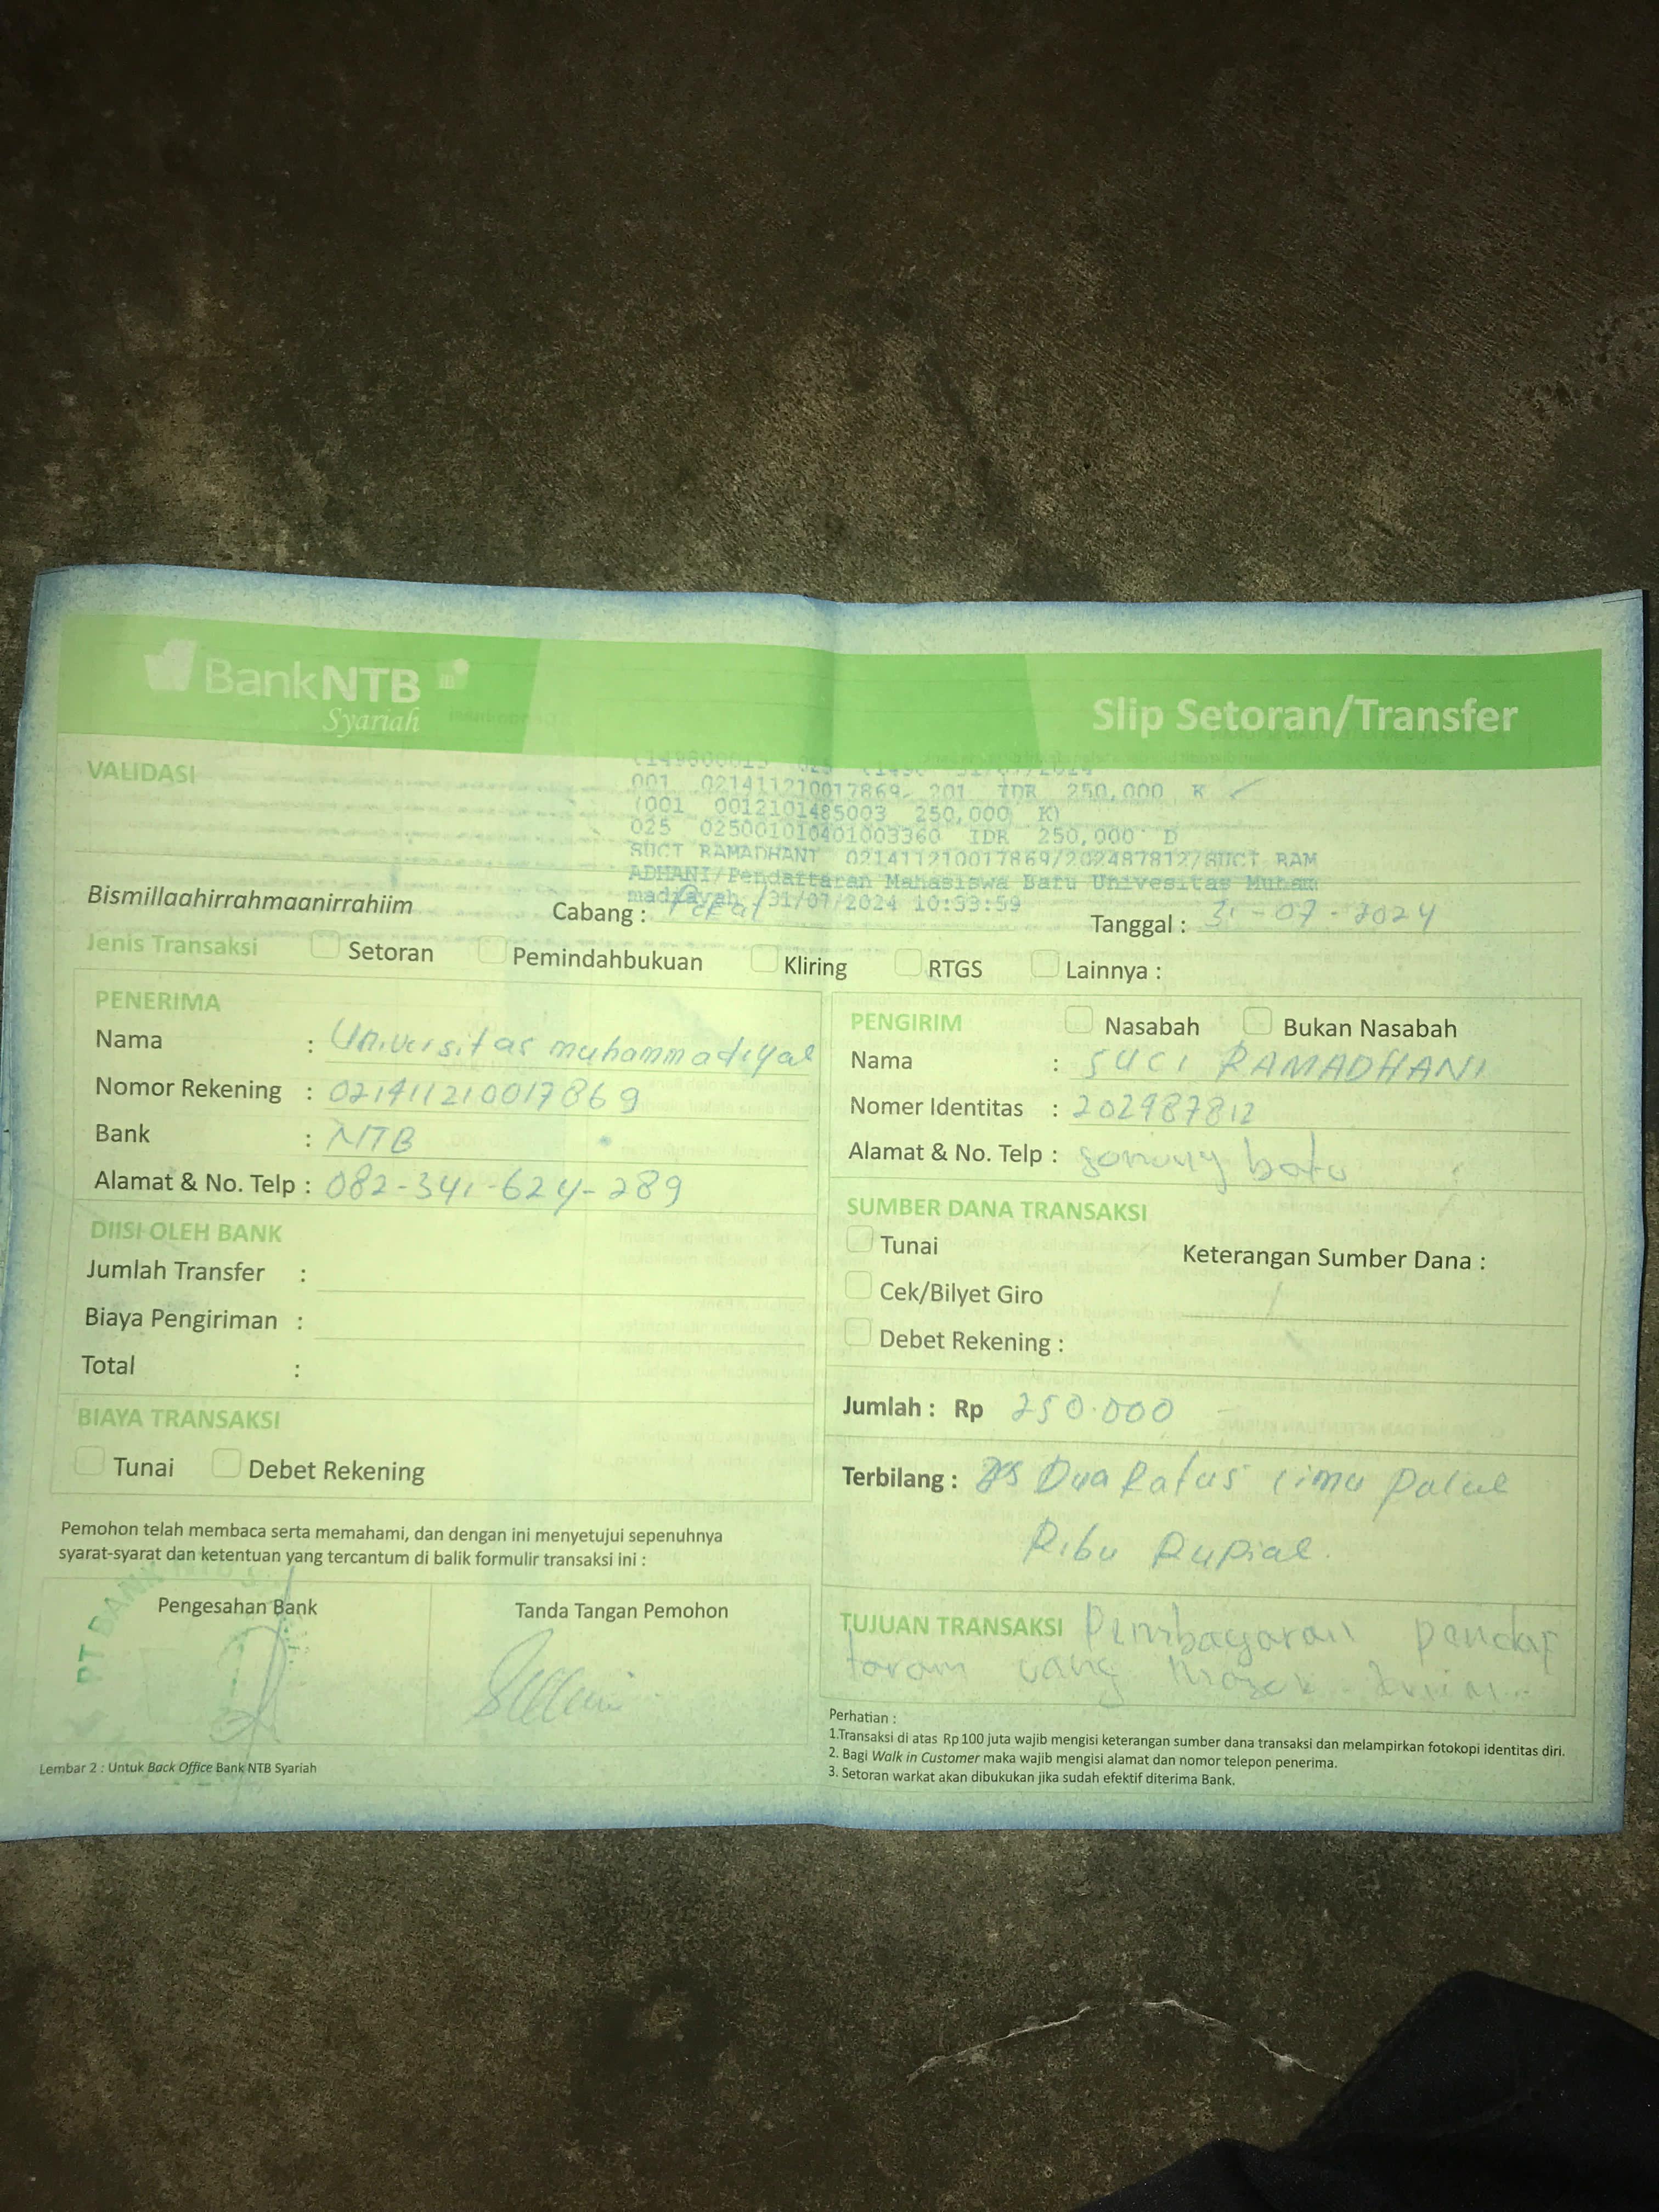 BankNTB
Syariah
Slip Setoran/Transfer
VALIDASI
31/07/2024
001 021411210017869 201 IDR 250,000 K
(001 0012101485003 250,000 K)
025 025001010401003360 IDR 250,000 D
SUCI RAMADHANI 021411210017869/202487812/SUCI RAM
ADHANI/Pendaftaran Mahasiswa Baru Univesitas Muham
madiayah /31/07/2024 10:33:59
Bismillaahirrahmaanirrahiim
Cabang : Pekat
Tanggal : 31-07-2024
Jenis Transaksi Setoran Pemindahbukuan Kliring RTGS Lainnya :
PENERIMA
Nama : Universitas muhammadiyah
Nomor Rekening : 021411210017869
Bank : NTB
Alamat & No. Telp : 082-341-624-289
DIISI OLEH BANK
Jumlah Transfer :
Biaya Pengiriman :
Total :
BIAYA TRANSAKSI
Tunai Debet Rekening
Pemohon telah membaca serta memahami, dan dengan ini menyetujui sepenuhnya
syarat-syarat dan ketentuan yang tercantum di balik formulir transaksi ini :
Pengesahan Bank
Tanda Tangan Pemohon
PT BANK NTB S
Lembar 2 : Untuk Back Office Bank NTB Syariah
PENGIRIM Nasabah Bukan Nasabah
Nama : SUCI RAMADHANI
Nomer Identitas : 202487812
Alamat & No. Telp :
SUMBER DANA TRANSAKSI
Tunai
Keterangan Sumber Dana :
Cek/Bilyet Giro
Debet Rekening :
Jumlah : Rp 250.000
Terbilang : Dua Ratus Lima Puluh
Ribu Rupiah.
TUJUAN TRANSAKSI Pembayaran pendaf
taran uang
Perhatian :
1.Transaksi di atas Rp100 juta wajib mengisi keterangan sumber dana transaksi dan melampirkan fotokopi identitas diri.
2. Bagi Walk in Customer maka wajib mengisi alamat dan nomor telepon penerima.
3. Setoran warkat akan dibukukan jika sudah efektif diterima Bank.